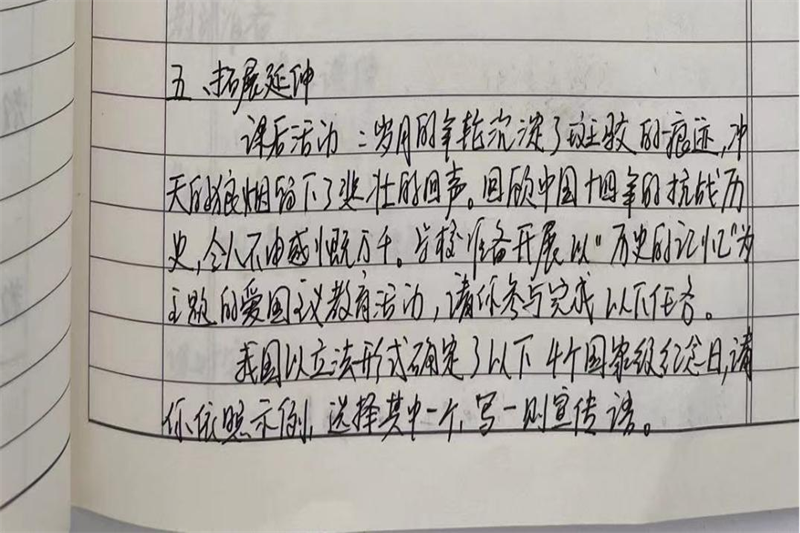 五、拓展延伸
课后活动:岁月的年轮沉淀了斑驳的痕迹,冲
天的狼烟留下了悲壮的回声。回顾中国十四年的抗战历
史,令人不由感慨万千。学校准备开展以“历史的记忆”为
主题的爱国主义教育活动,请你参与完成以下任务。
我国以立法形式确定了以下4个国家级纪念日,请
你依照示例,选择其中一个,写一则宣传语。